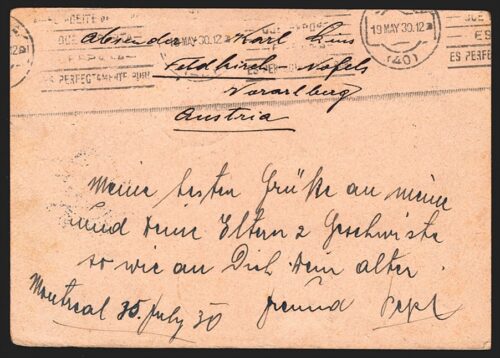 ES PERFECTAMENTE
19 MAY 30.12
ES
ES PERFE
(40)
Absender Karl
Feldkirch - Nofels
Vorarlberg
Austria
Meine besten Grüße an meine
und Deine Eltern & Geschwiste
so wie an Dich Dein alter
Freund Pepl
Montreal 35. July 30